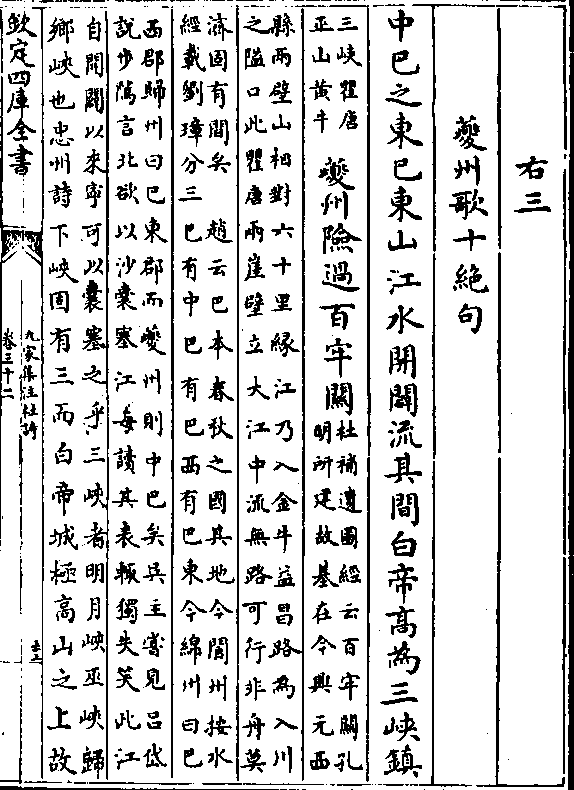 右三
夔州歌十絶句
中巴之東巴東山江水開闢流其間白帝高為三峽鎮
三峽瞿唐
正山黄牛
夔州險過百牢關
杜補遺圖經云百牢關孔
明所建故基在今興元西
縣兩壁山相對六十里縁江乃入金牛益昌路為入川
之隘口此瞿唐兩崖壁立大江中流無路可行非舟莫
濟固有間矣 趙云巴本春秋之國其地今閬州按水
經載劉璋分三巴有中巴有巴西有巴東今綿州曰巴
西郡歸州曰巴東郡而夔州則中巴矣吳主嘗見呂岱
説步隲言北欲以沙囊塞江每讀其表輒獨失笑此江
自開闢以來寧可以囊塞之乎三峽者明月峽巫峽歸
鄉峽也忠州詩下峽固有三而白帝城極高山之上故
欽定四庫全書
九家集注杜詩
卷三十二